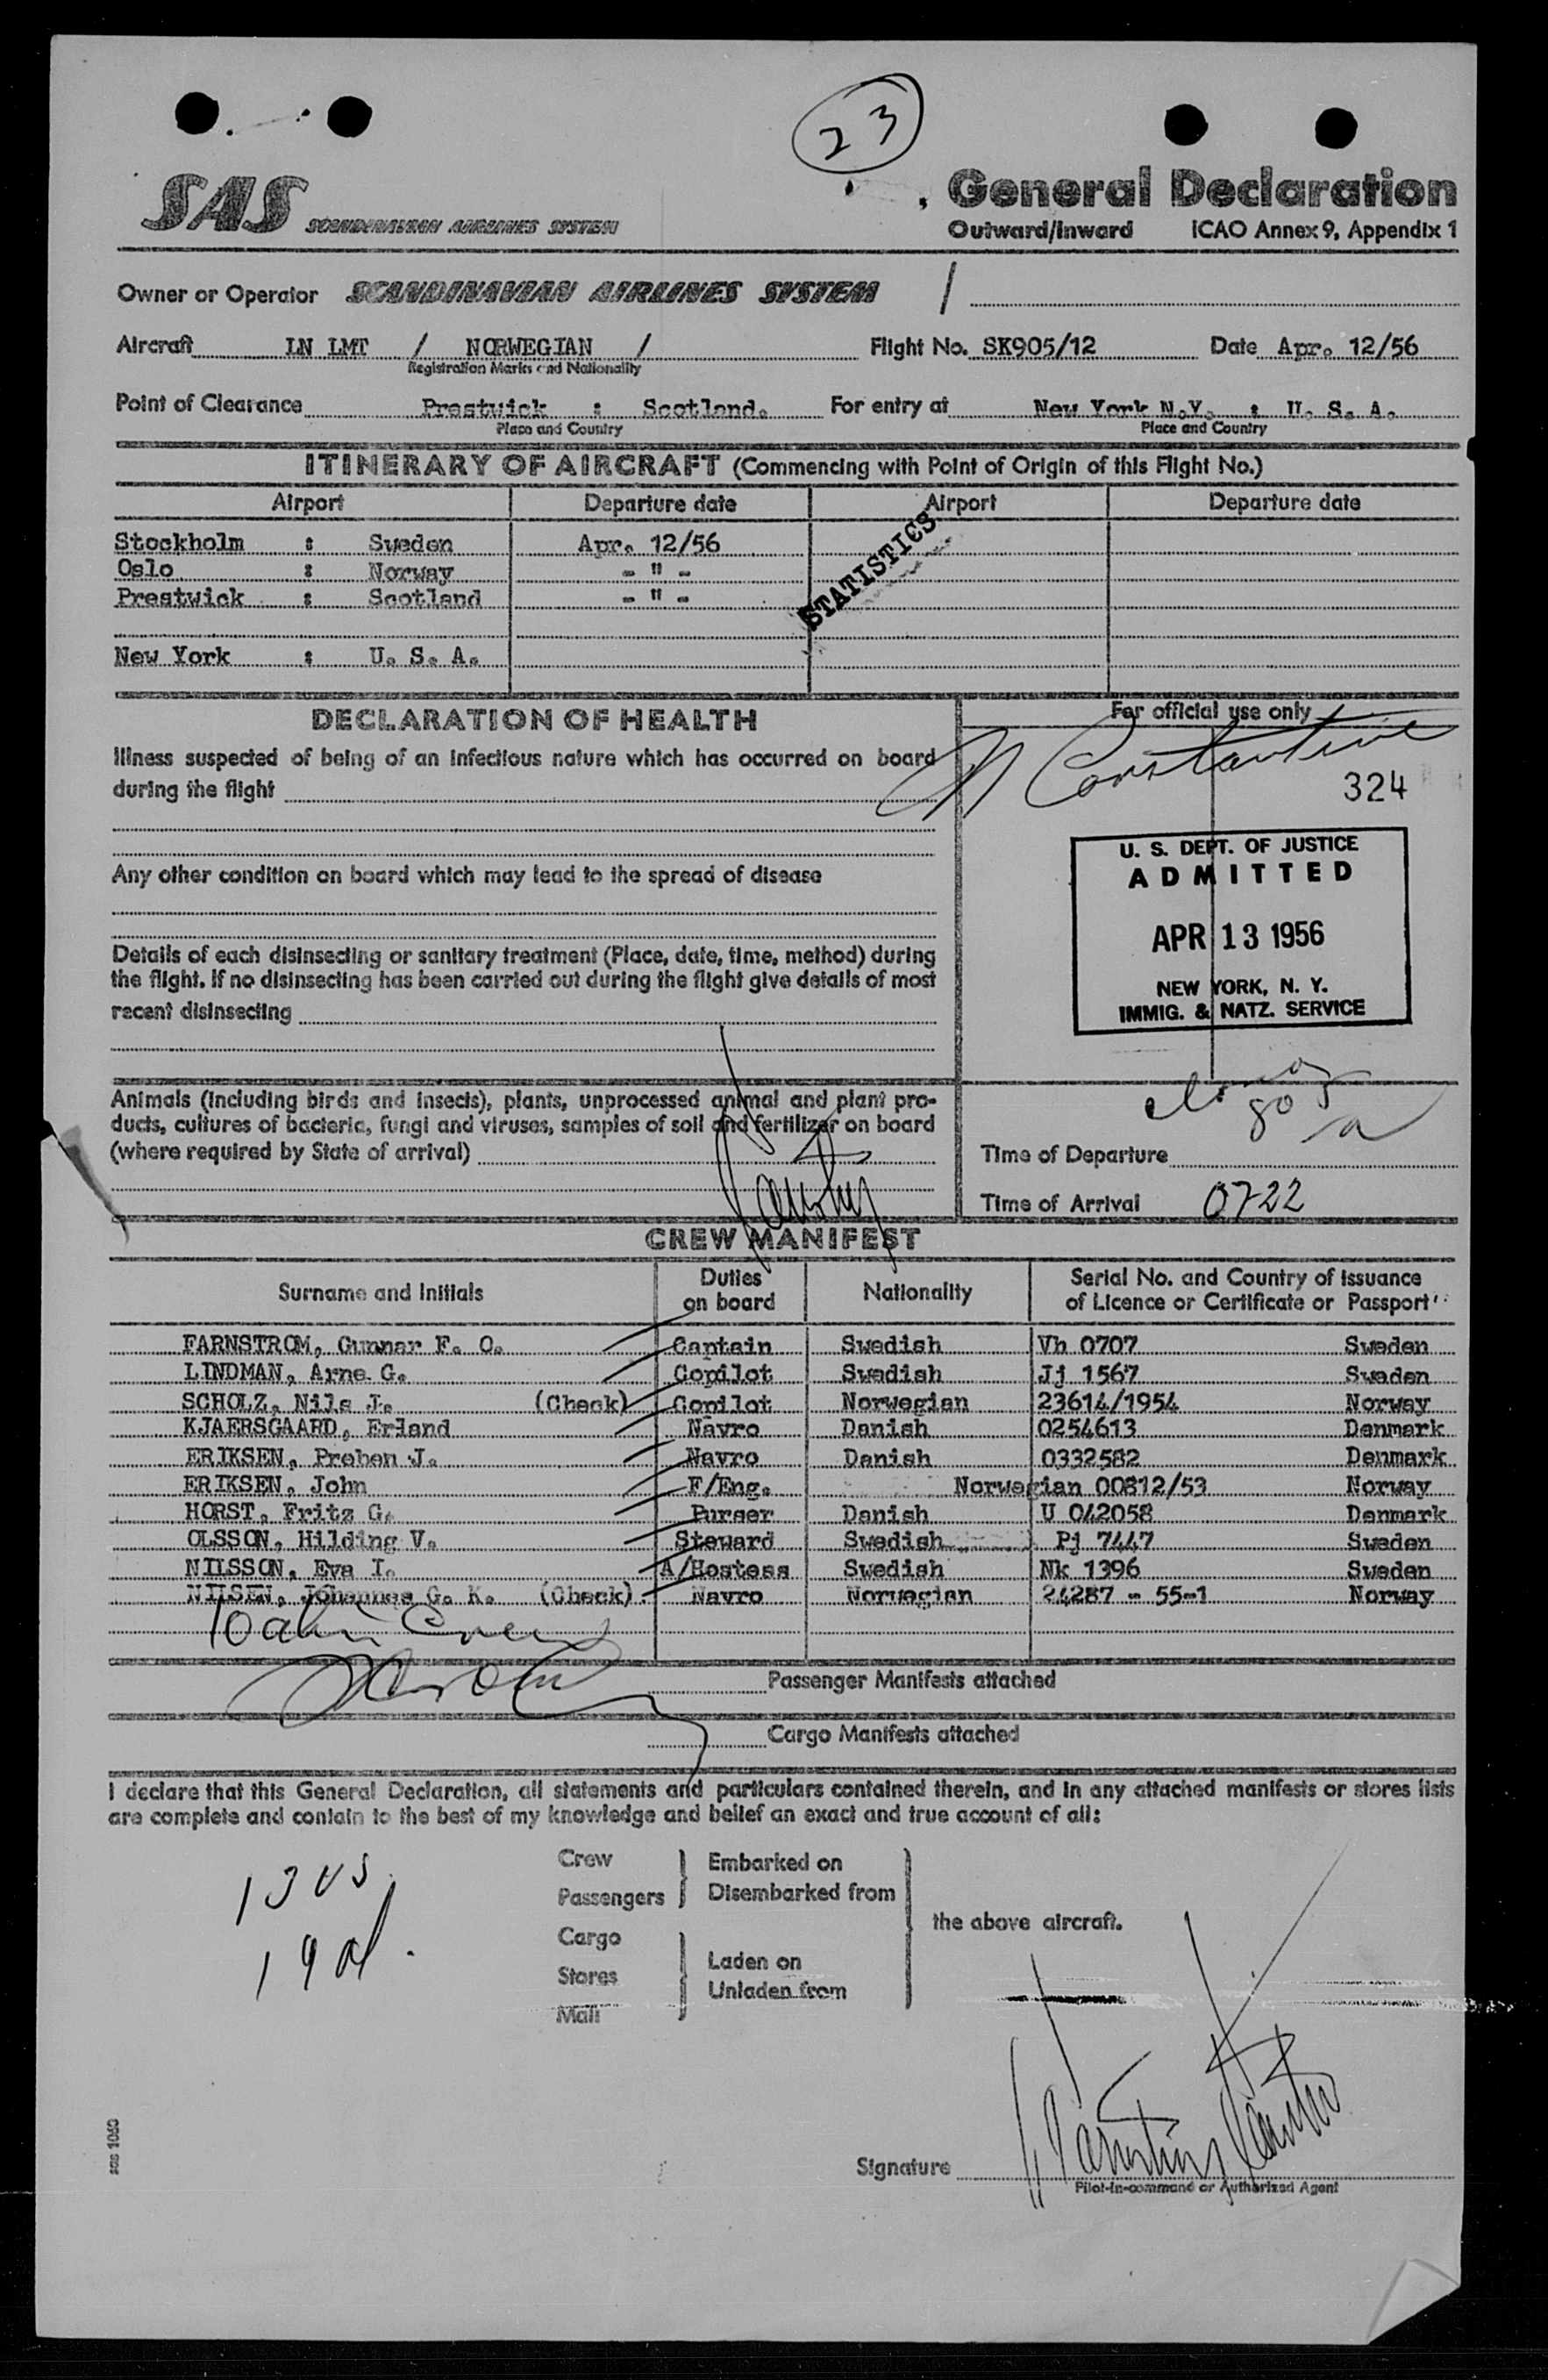 23
SAS SCANDINAVIAN AIRLINES SYSTEM
General Declaration
Outward/Inward ICAO Annex 9, Appendix 1
Owner or Operator SCANDINAVIAN AIRLINES SYSTEM /
Aircraft LN LMT / NORWEGIAN / Flight No. SK905/12 Date Apr. 12/56
Registration Marks and Nationality
Point of Clearance Prestwick : Scotland. For entry at New York N.Y. : U. S. A.
Place and Country Place and Country
ITINERARY OF AIRCRAFT (Commencing with Point of Origin of this Flight No.)
Airport Departure date Airport Departure date
Stockholm : Sweden Apr. 12/56
Oslo : Norway - " -
Prestwick : Scotland - " -
STATISTICS
New York : U. S. A.
DECLARATION OF HEALTH
Illness suspected of being of an infectious nature which has occurred on board
during the flight
Any other condition on board which may lead to the spread of disease
Details of each disinsecting or sanitary treatment (Place, date, time, method) during
the flight. If no disinsecting has been carried out during the flight give details of most
recent disinsecting
For official use only
Constantine
324
U. S. DEPT. OF JUSTICE
ADMITTED
APR 13 1956
NEW YORK, N. Y.
IMMIG. & NATZ. SERVICE
Animals (including birds and insects), plants, unprocessed animal and plant pro-
ducts, cultures of bacteria, fungi and viruses, samples of soil and fertilizer on board
(where required by State of arrival)
Time of Departure
Time of Arrival 0722
CREW MANIFEST
Surname and Initials Duties on board Nationality Serial No. and Country of Issuance of Licence or Certificate or Passport
FARNSTROM, Gunnar F. O. Captain Swedish Vh 0707 Sweden
LINDMAN, Arne G. Copilot Swedish Jj 1567 Sweden
SCHOLZ, Nils J. (Check) Copilot Norwegian 23614/1954 Norway
KJAERSGAARD, Erland Navro Danish 0254613 Denmark
ERIKSEN, Preben J. Navro Danish 0332582 Denmark
ERIKSEN, John F/Eng. Norwegian 00812/53 Norway
HORST, Fritz G. Purser Danish U 042058 Denmark
OLSSON, Hilding V. Steward Swedish Pj 7447 Sweden
NILSSON, Eva I. A/Hostess Swedish Nk 1396 Sweden
NILSEN, Johannes G. K. (Check) Navro Norwegian 24287 - 55-1 Norway
10 Crew
Passenger Manifests attached
Cargo Manifests attached
I declare that this General Declaration, all statements and particulars contained therein, and in any attached manifests or stores lists
are complete and contain to the best of my knowledge and belief an exact and true account of all:
13 US
19 al.
Crew
Passengers
Embarked on
Disembarked from
Cargo
Stores
Mail
Laden on
Unladen from
the above aircraft.
Signature
Pilot-in-command or Authorized Agent
SAS 1060